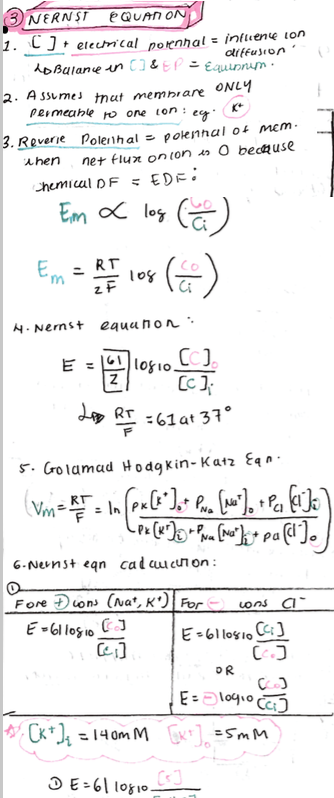 ③ NERNST EQUATION
1. [ ] + electrical potential = influence ion
diffusion
↳ Balance in [ ] & EP = Equibrium.
2. Assumes that membrane ONLY
permeable to one ion: eg. K+
3. Reverse Potential = potential of mem.
when net flux of ion is 0 because
chemical DF = EDF:
Em ∝ log (Co/Ci)
Em = RT/zF log (Co/Ci)
4. Nernst equation:
E = 61/Z log10 [C]o/[C]i
↳ RT/F = 61 at 37°
5. Golamad Hodgkin-Katz Eqn.
Vm = RT/F = ln (PK[K+]o + PNa[Na+]o + PCl[Cl-]i / PK[K+]i + PNa[Na+]i + PCl[Cl-]o)
6. Nernst eqn calculation:
①
Fore ⊕ ions (Na+, K+) | For ⊖ ions Cl-
E = 61 log10 [Co]/[Ci] | E = 61 log10 [Ci]/[Co]
OR
E = ⊖ log10 [Co]/[Ci]
☆ [K+]i = 140mM [K+]o = 5mM
① E = 61 log10